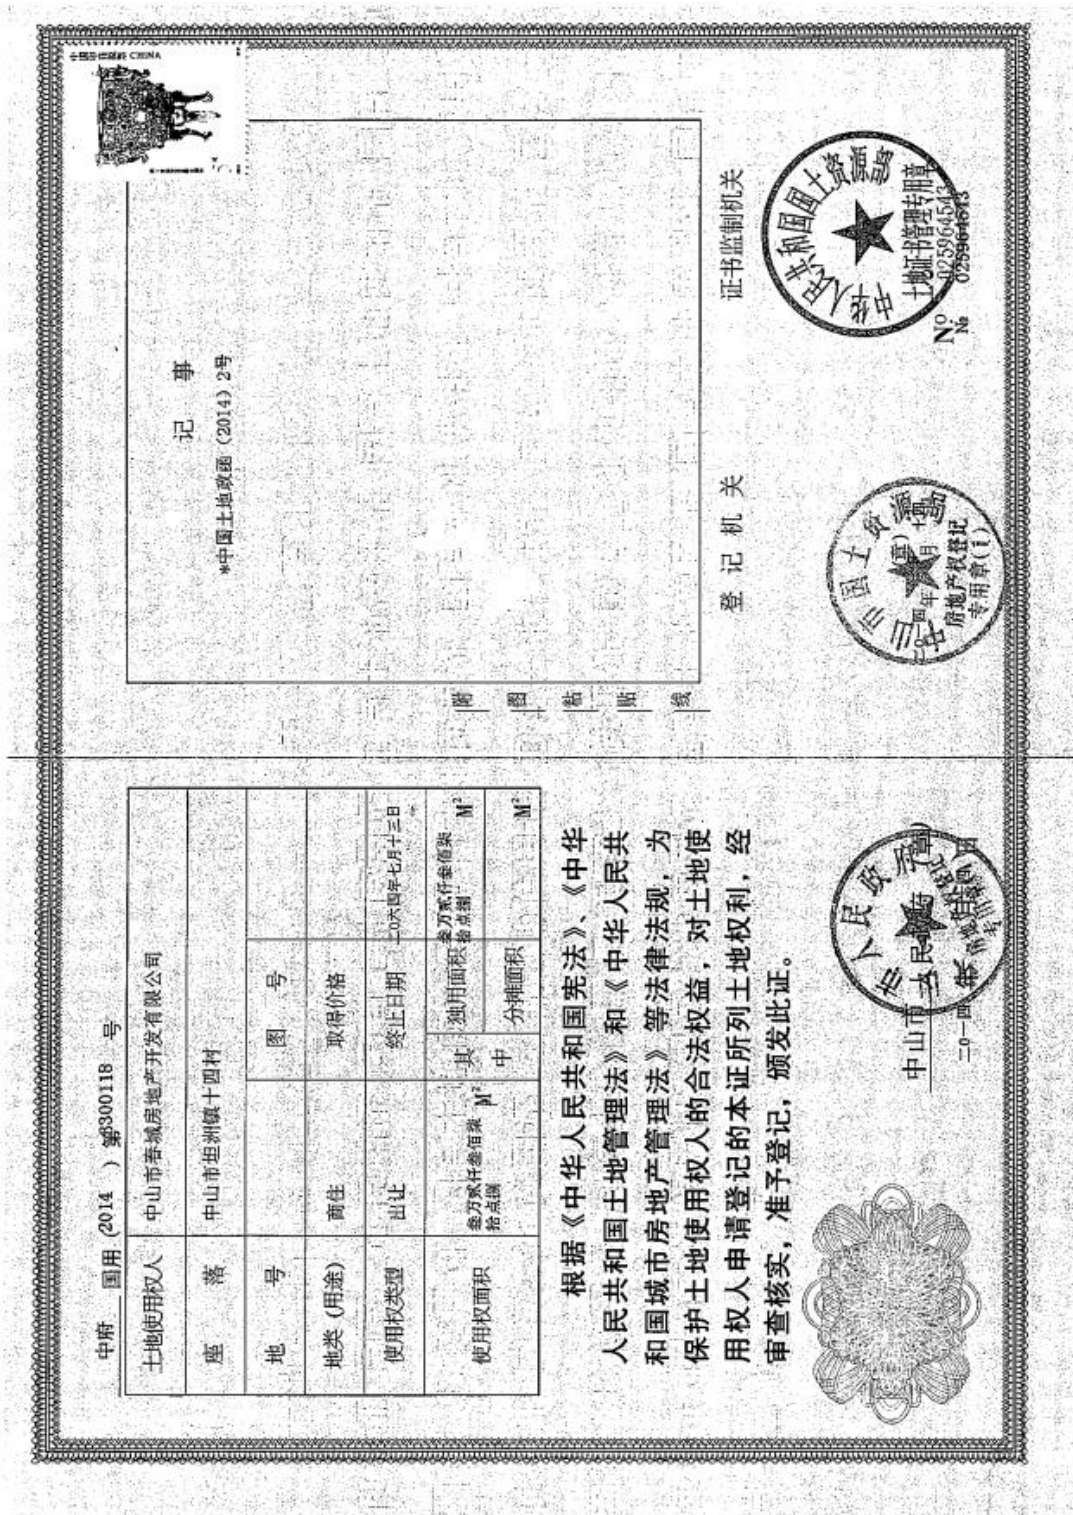 中府 国用(2014 )第3300118 号
土地使用权人 中山市春城房地产开发有限公司
座 落 中山市坦洲镇十四村
地 号 图 号
地类(用途) 商住 取得价格
使用权类型 出让 终止日期 二0六四年七月十三日
使用权面积 叁万贰仟叁佰柒拾点捌 M² 其中 独用面积 叁万贰仟叁佰柒拾点捌 M²
分摊面积 M²
根据《中华人民共和国宪法》、《中华
人民共和国土地管理法》和《中华人民共
和国城市房地产管理法》等法律法规，为
保护土地使用权人的合法权益，对土地使
用权人申请登记的本证所列土地权利，经
审查核实，准予登记，颁发此证。
中山市人民政府(章)
中国邮政 CHINA
记 事
*中国土地政函(2014)2号
附图粘贴线
登 记 机 关
中山市国土资源局
(章)
房地产权登记
专用章(1)
证书监制机关
中华人民共和国国土资源部
土地证书管理专用章
No 025964543
№ 025964543